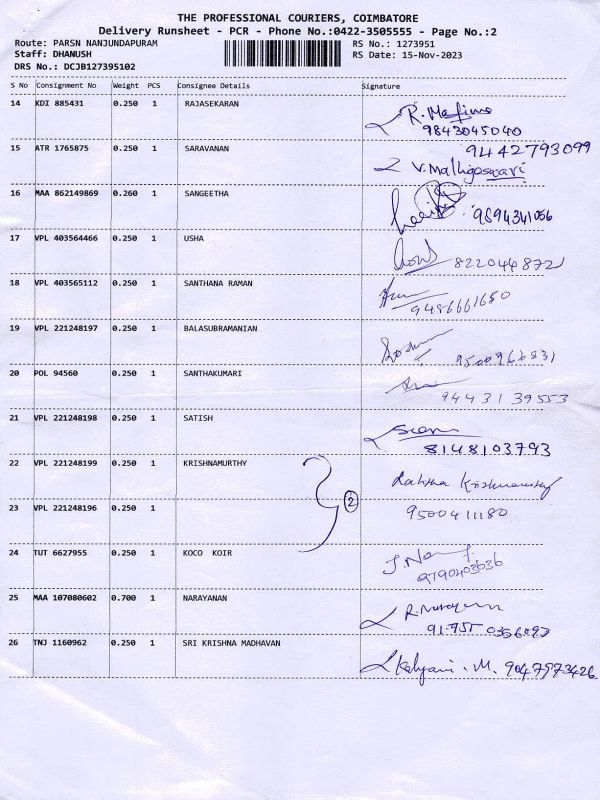 THE PROFESSIONAL COURIERS, COIMBATORE
Delivery Runsheet - PCR - Phone No.:0422-3505555 - Page No.:2
Route: PARSN NANJUNDAPURAM RS No.: 1273951
Staff: DHANUSH RS Date: 15-Nov-2023
DRS No.: DCJB127395102
S No Consignment No Weight PCS Consignee Details Signature
14 KDI 885431 0.250 1 RAJASEKARAN
9843045040
15 ATR 1765875 0.250 1 SARAVANAN 9442793099
16 MAA 862149869 0.260 1 SANGEETHA
9894341056
17 VPL 403564466 0.250 1 USHA
8220448721
18 VPL 403565112 0.250 1 SANTHANA RAMAN
9486661680
19 VPL 221248197 0.250 1 BALASUBRAMANIAN
20 POL 94560 0.250 1 SANTHAKUMARI
94431 39553
21 VPL 221248198 0.250 1 SATISH
8148103793
22 VPL 221248199 0.250 1 KRISHNAMURTHY
2
23 VPL 221248196 0.250 9500411180
24 TUT 6627955 0.250 1 KOCO KOIR
9790403636
25 MAA 107080602 0.700 1 NARAYANAN
26 TNJ 1160962 0.250 1 SRI KRISHNA MADHAVAN
Kalyani . M. 9047973426